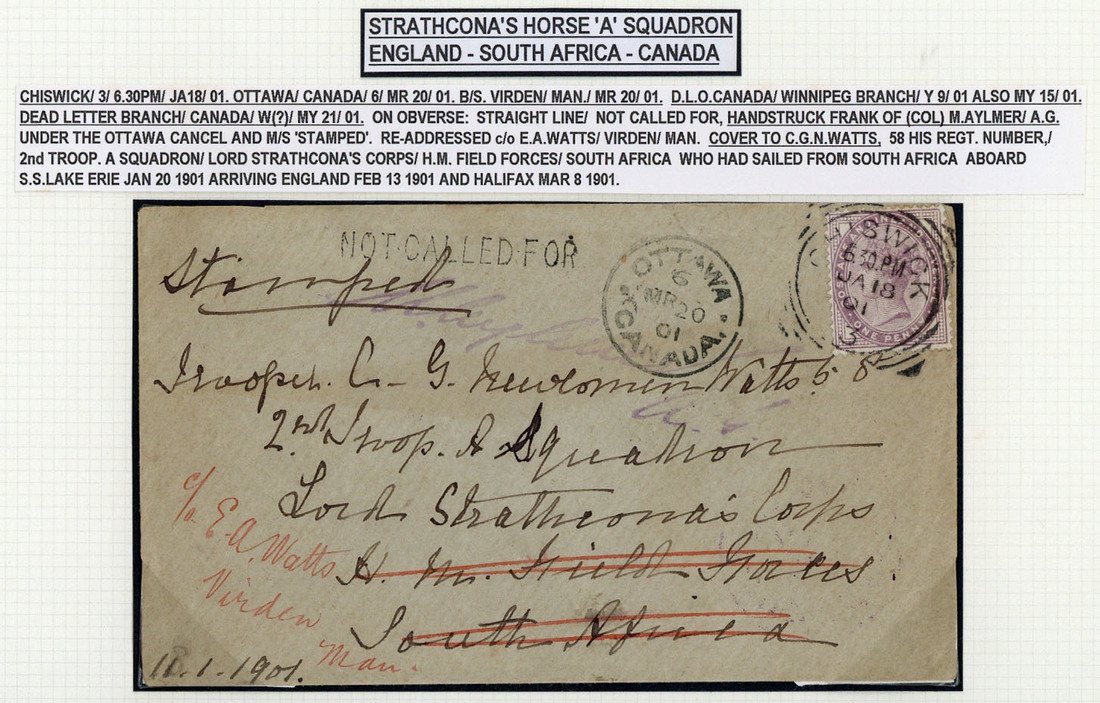 STRATHCONA'S HORSE 'A' SQUADRON
ENGLAND - SOUTH AFRICA - CANADA
CHISWICK/ 3/ 6.30PM/ JA18/ 01. OTTAWA/ CANADA/ 6/ MR 20/ 01. B/S. VIRDEN/ MAN./ MR 20/ 01. D.L.O.CANADA/ WINNIPEG BRANCH/ Y 9/ 01 ALSO MY 15/ 01.
DEAD LETTER BRANCH/ CANADA/ W(?)/ MY 21/ 01. ON OBVERSE: STRAIGHT LINE/ NOT CALLED FOR, HANDSTRUCK FRANK OF (COL) M.AYLMER/ A.G.
UNDER THE OTTAWA CANCEL AND M/S 'STAMPED'. RE-ADDRESSED c/o E.A.WATTS/ VIRDEN/ MAN. COVER TO C.G.N.WATTS, 58 HIS REGT. NUMBER,/
2nd TROOP. A SQUADRON/ LORD STRATHCONA'S CORPS/ H.M. FIELD FORCES/ SOUTH AFRICA WHO HAD SAILED FROM SOUTH AFRICA ABOARD
S.S.LAKE ERIE JAN 20 1901 ARRIVING ENGLAND FEB 13 1901 AND HALIFAX MAR 8 1901.
NOT·CALLED·FOR
Stamped
OTTAWA
6
MR 20
01
CANADA.
CHISWICK
6.30.PM
JA 18
01
3
ONE PENNY
Trooper. C. G. Newcomen Watts 58
2nd Troop. A Squadron
Lord Strathcona's Corps
H. M. Field Forces.
South Africa
c/o E.A. Watts
Virden
Man.
11.1.1901.